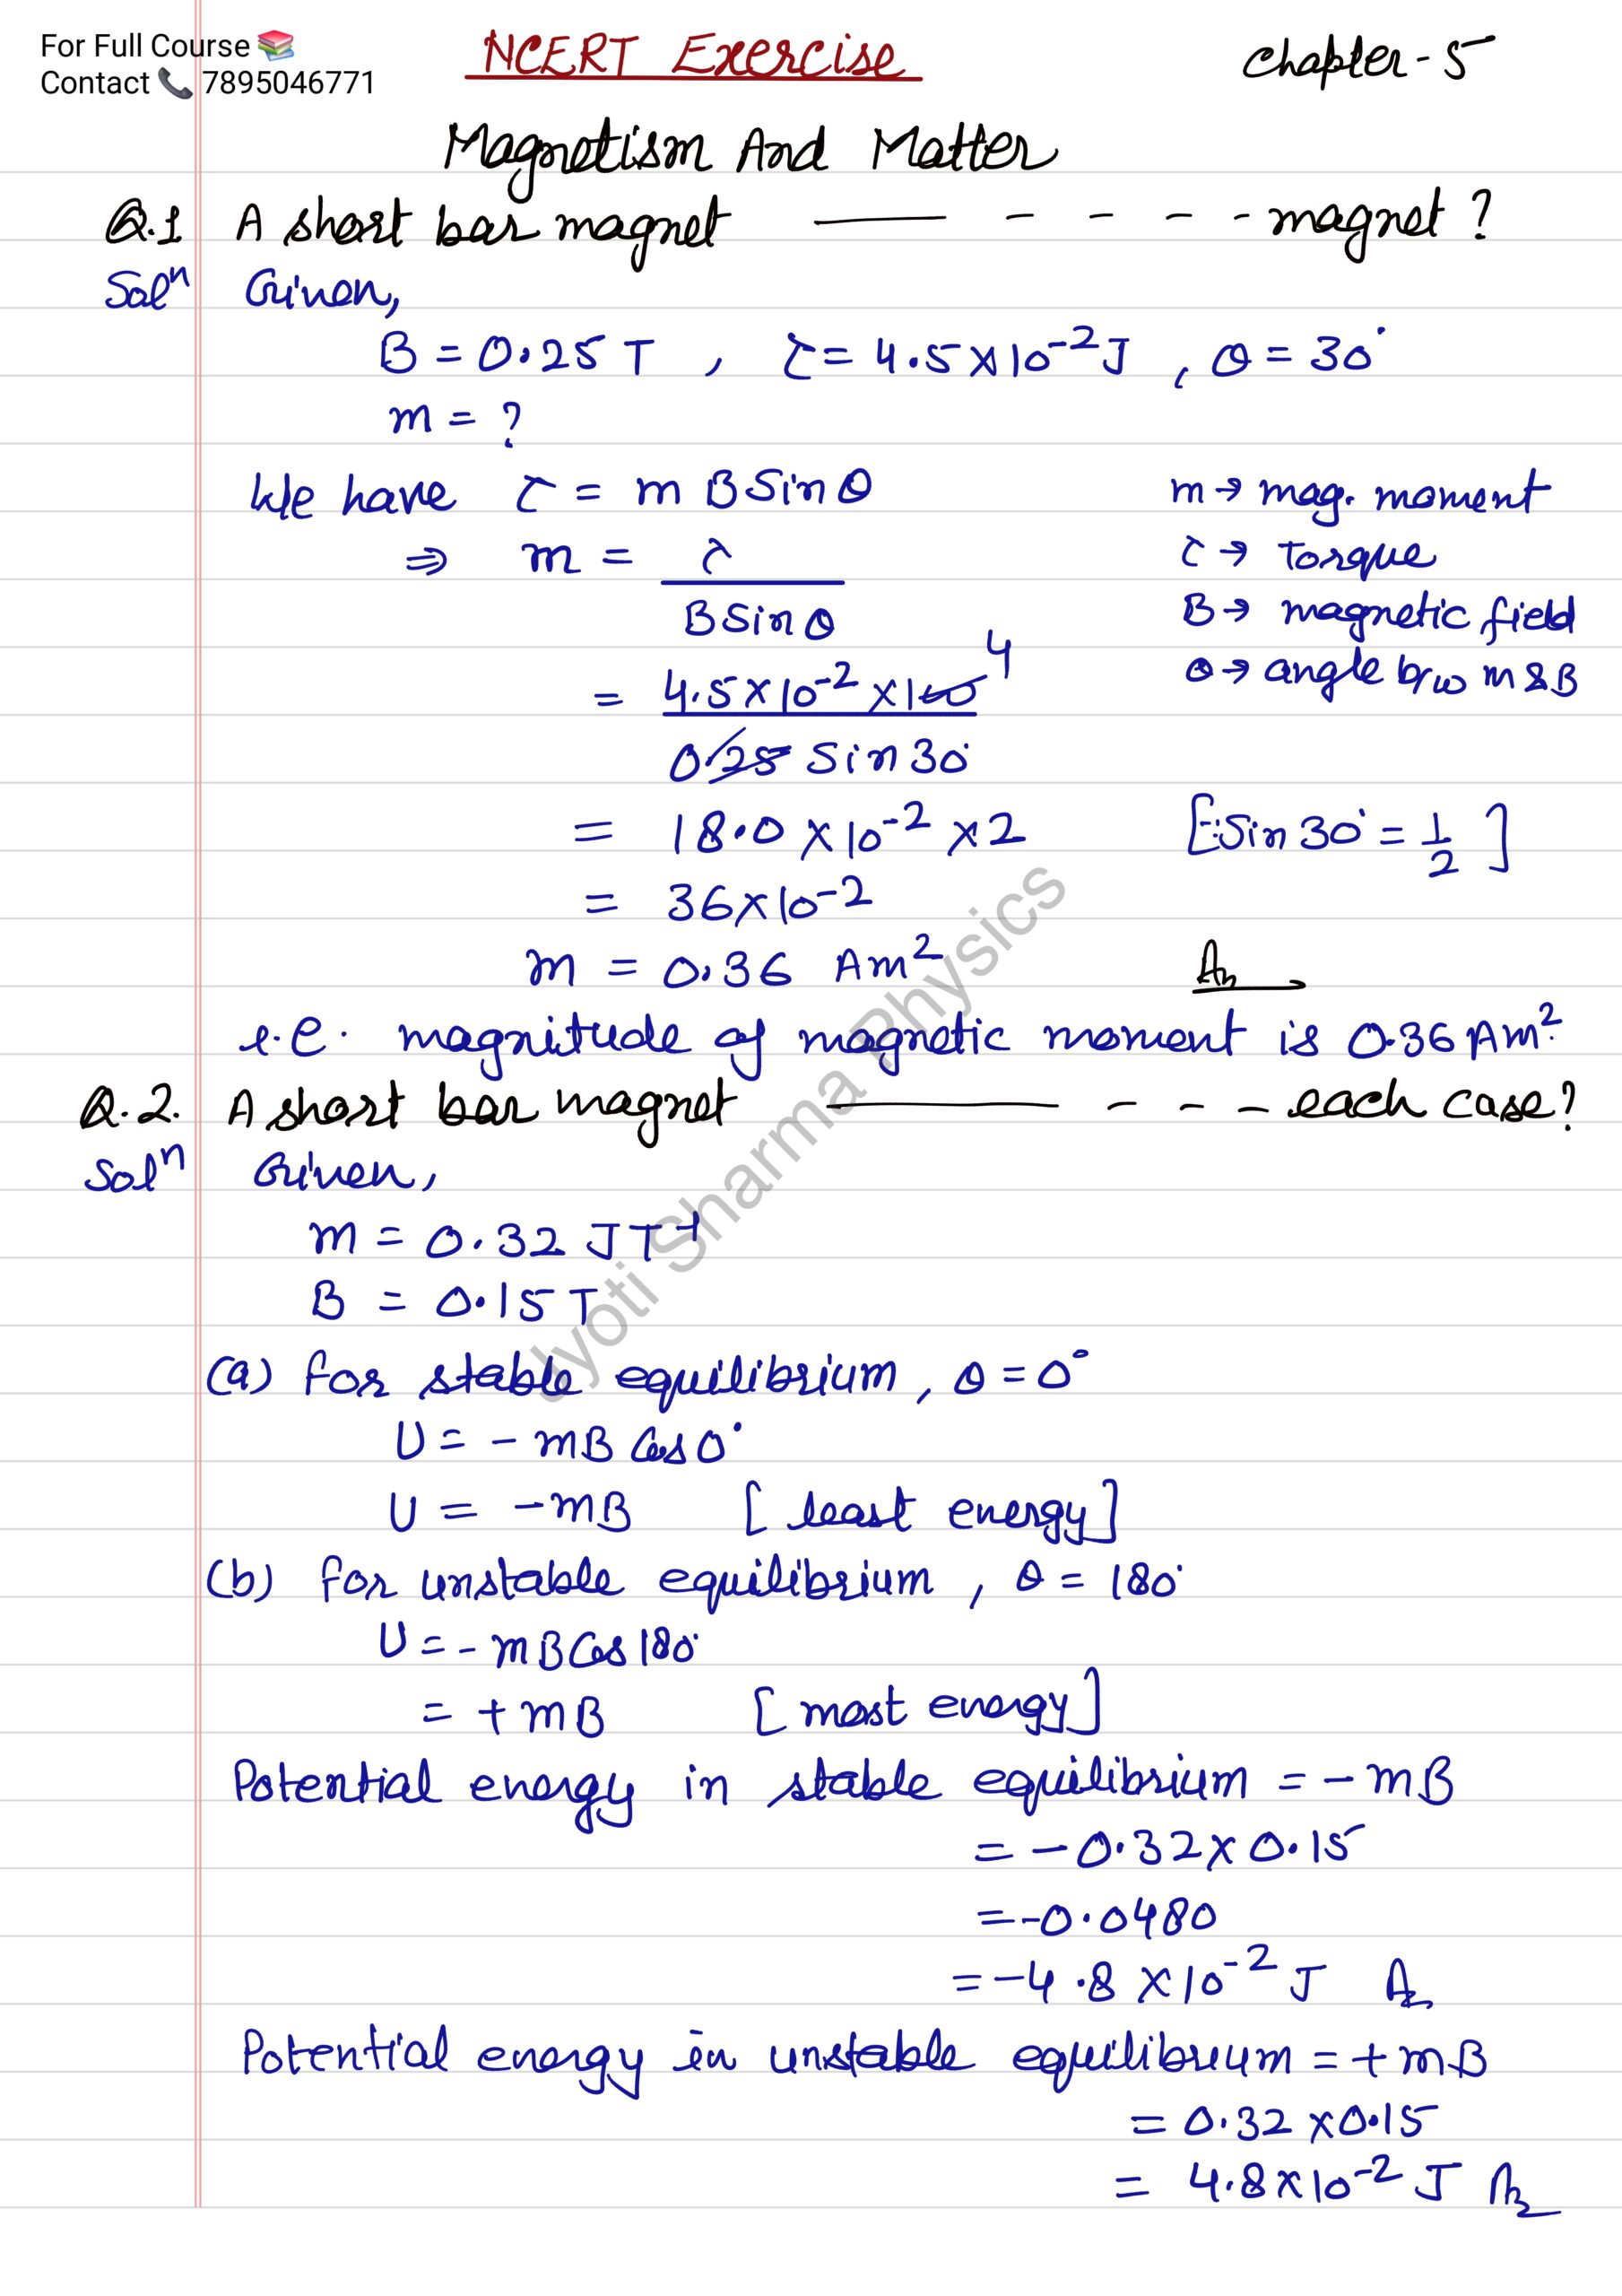 For Full Course 📚
Contact 📞 7895046771
NCERT Exercise
Chapter-5
Magnetism And Matter
Q.1 A short bar magnet ——— - - - - magnet ?
Solⁿ Given,
B = 0.25 T , τ = 4.5×10⁻² J , θ = 30°
m = ?
We have τ = m B Sin θ
m → mag. moment
⇒ m = τ / B Sin θ
τ → torque
B → magnetic field
θ → angle b/w m & B
= 4.5×10⁻² ×100 4 / 0.25 Sin 30°
= 18.0 ×10⁻² ×2 [∵ Sin 30° = 1/2 ]
= 36×10⁻²
m = 0.36 Am² An
i.e. magnitude of magnetic moment is 0.36 Am².
Q.2. A short bar magnet ——— - - - each case?
Solⁿ Given,
m = 0.32 JT⁻¹
B = 0.15 T
(a) for stable equilibrium, θ = 0°
U = - mB Cos 0°
U = -mB [ least energy]
(b) for unstable equilibrium , θ = 180°
U = - mB Cos 180°
= + mB [ most energy]
Potential energy in stable equilibrium = - mB
= - 0.32 × 0.15
= -0.0480
= -4.8 ×10⁻² J An
Potential energy in unstable equilibrium = + mB
= 0.32 ×0.15
= 4.8×10⁻² J An
Jyoti Sharma Physics